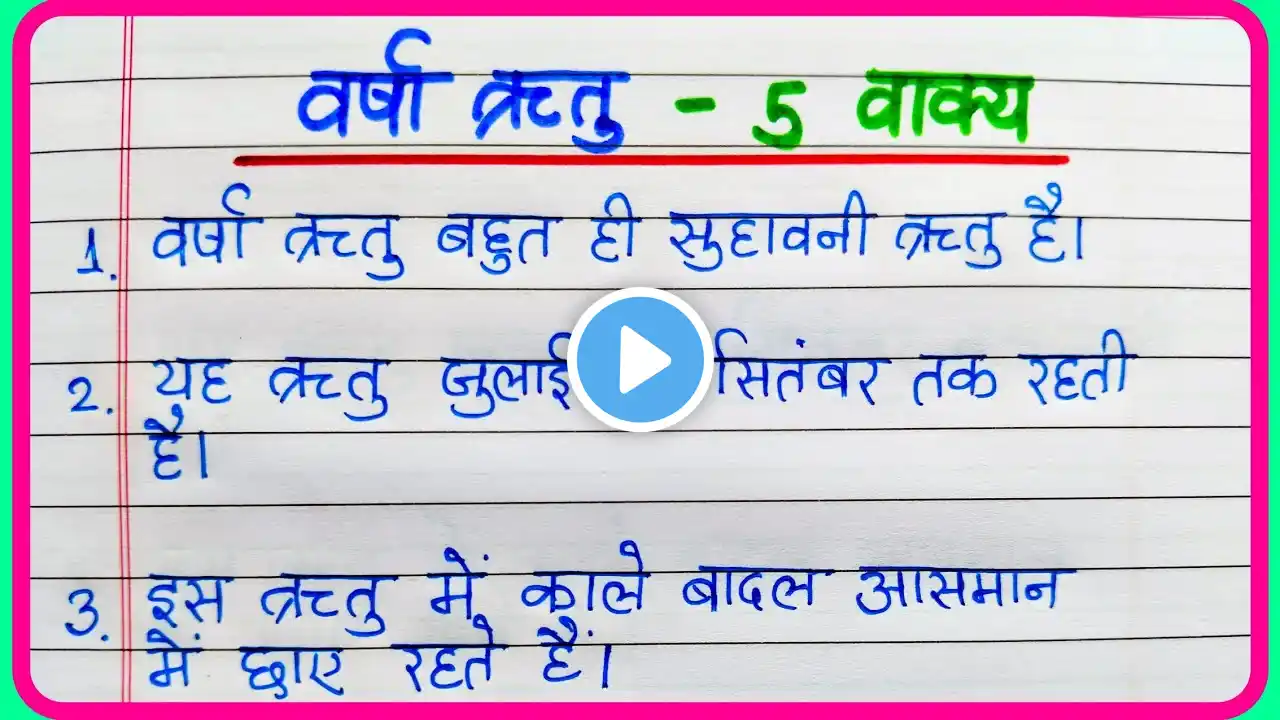 वर्षा ऋतु - 5 वाक्य
1. वर्षा ऋतु बहुत ही सुहावनी ऋतु है।
2. यह ऋतु जुलाई सितंबर तक रहती
है।
3. इस ऋतु में काले बादल आसमान
में छाए रहते हैं।